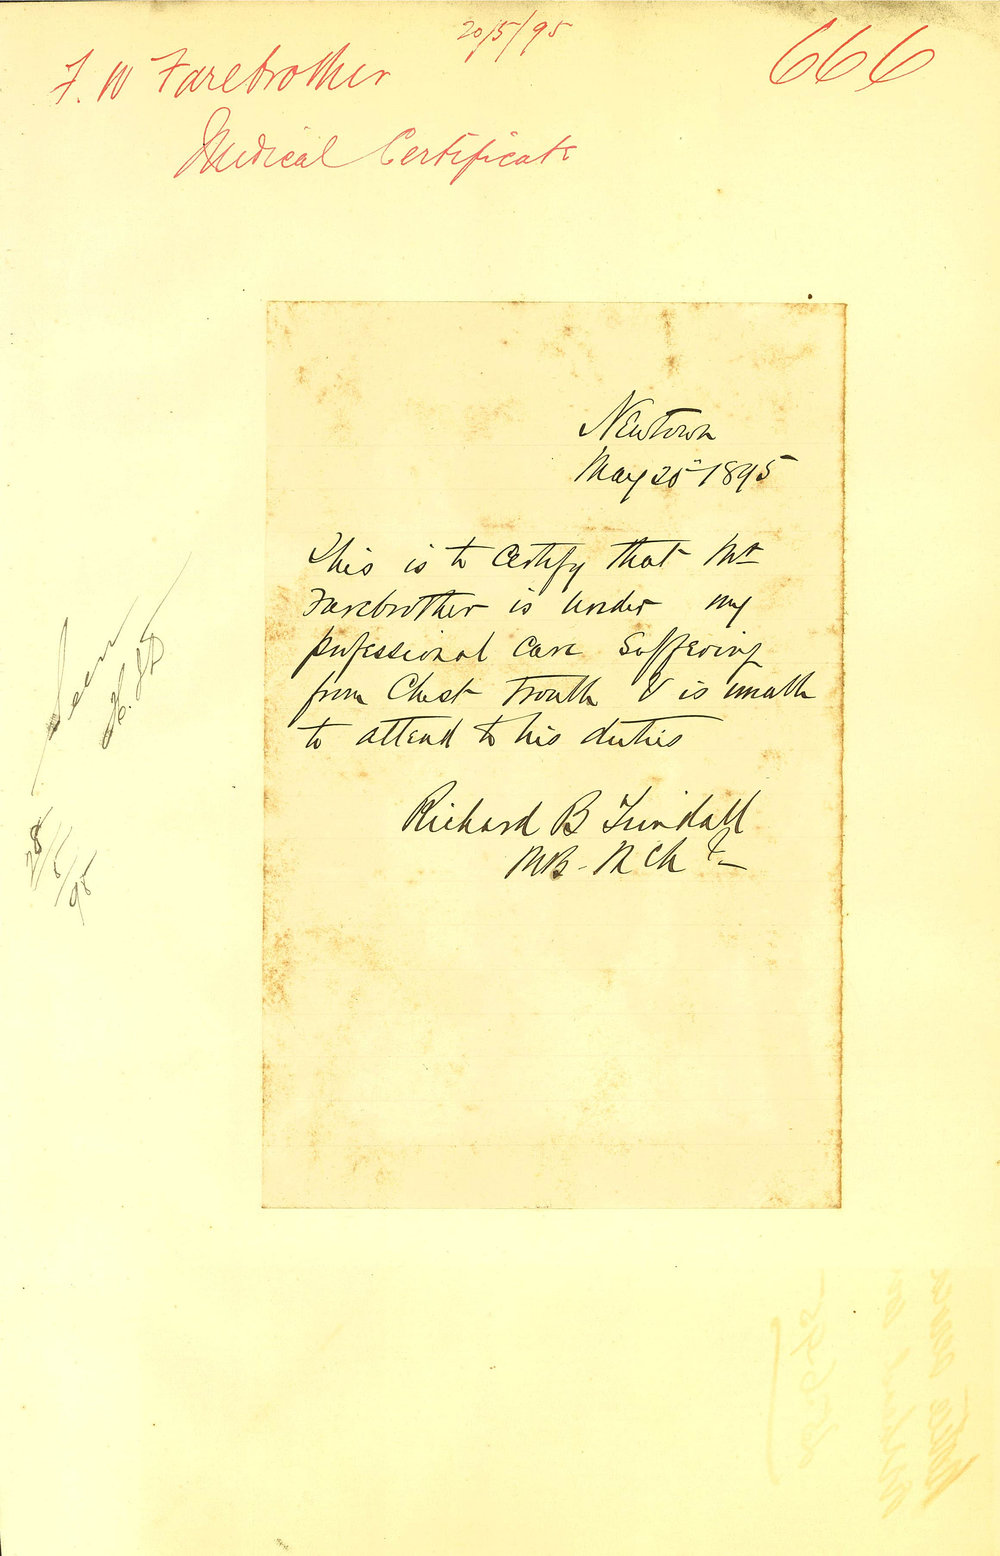 20/5/95
F. W Farebrother
666
Medical Certificate
Newtown
May 20th 1895
This is to Certify that Mr
Farebrother is under my
professional care Suffering
from Chest Trouble & is unable
to attend to his duties
Richard B Trindall
MB - M Ch &c
Seen
28/5/95